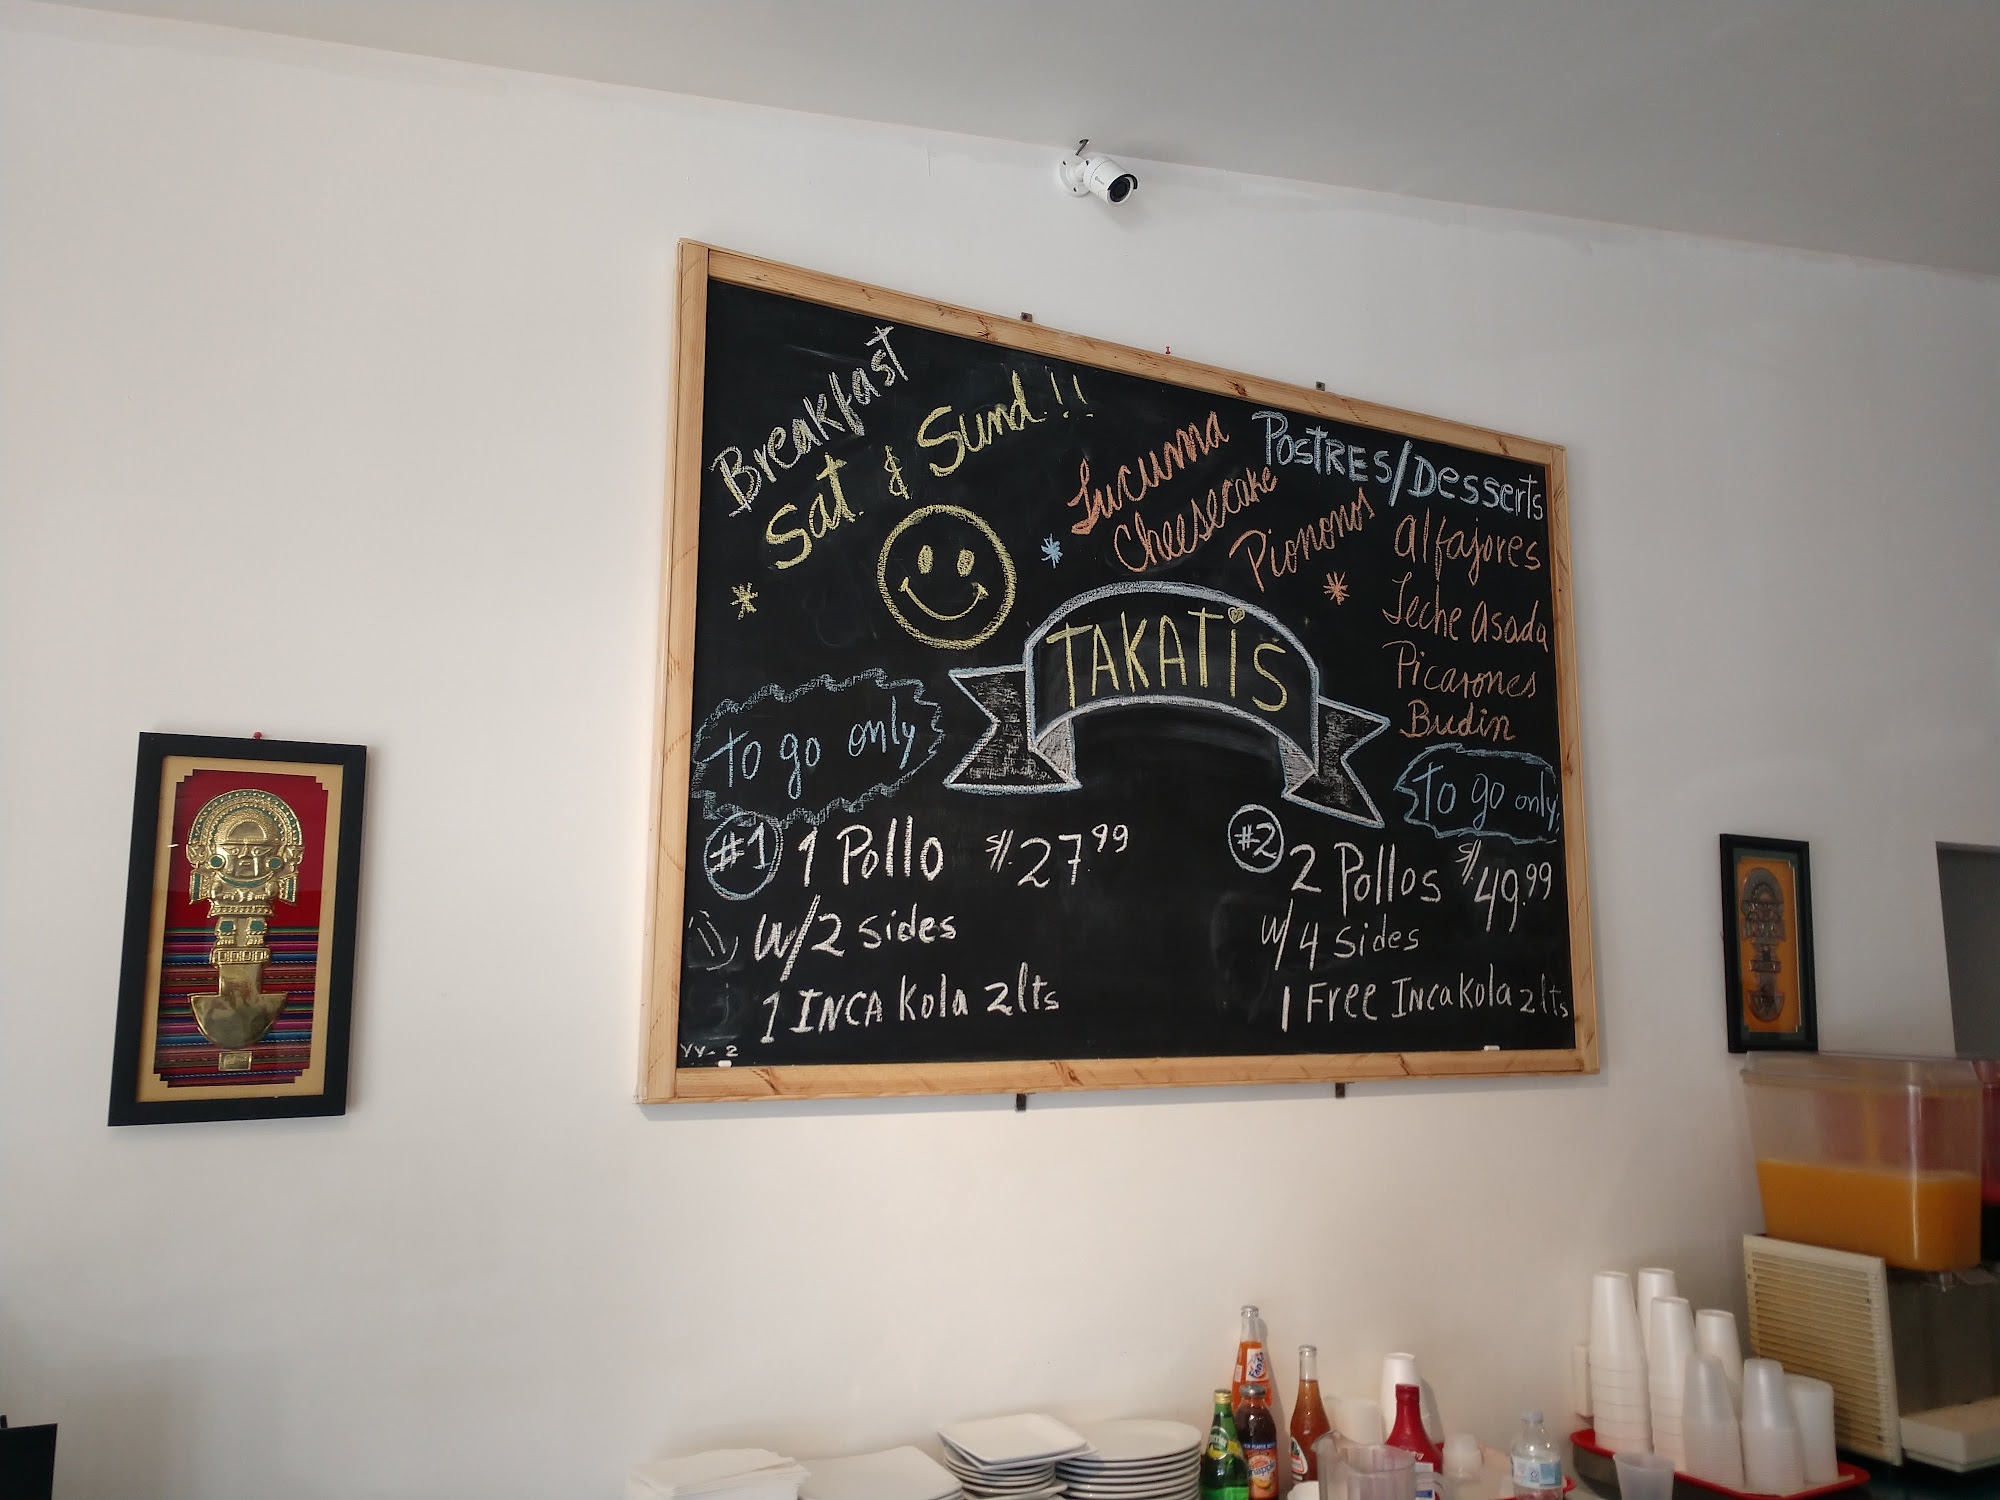 Breakfast
Sat. & Sund.!!
Lucuma
Cheesecake
Pionono's
Postres/Desserts
Alfajores
Leche Asada
Picarones
Budin
TAKATIS
To go only
#1 1 Pollo S/. 27.99
w/2 sides
1 INCA Kola 2lts
To go only
#2 2 Pollos S/. 49.99
w/4 sides
1 Free Inca Kola 2lts
Fanta